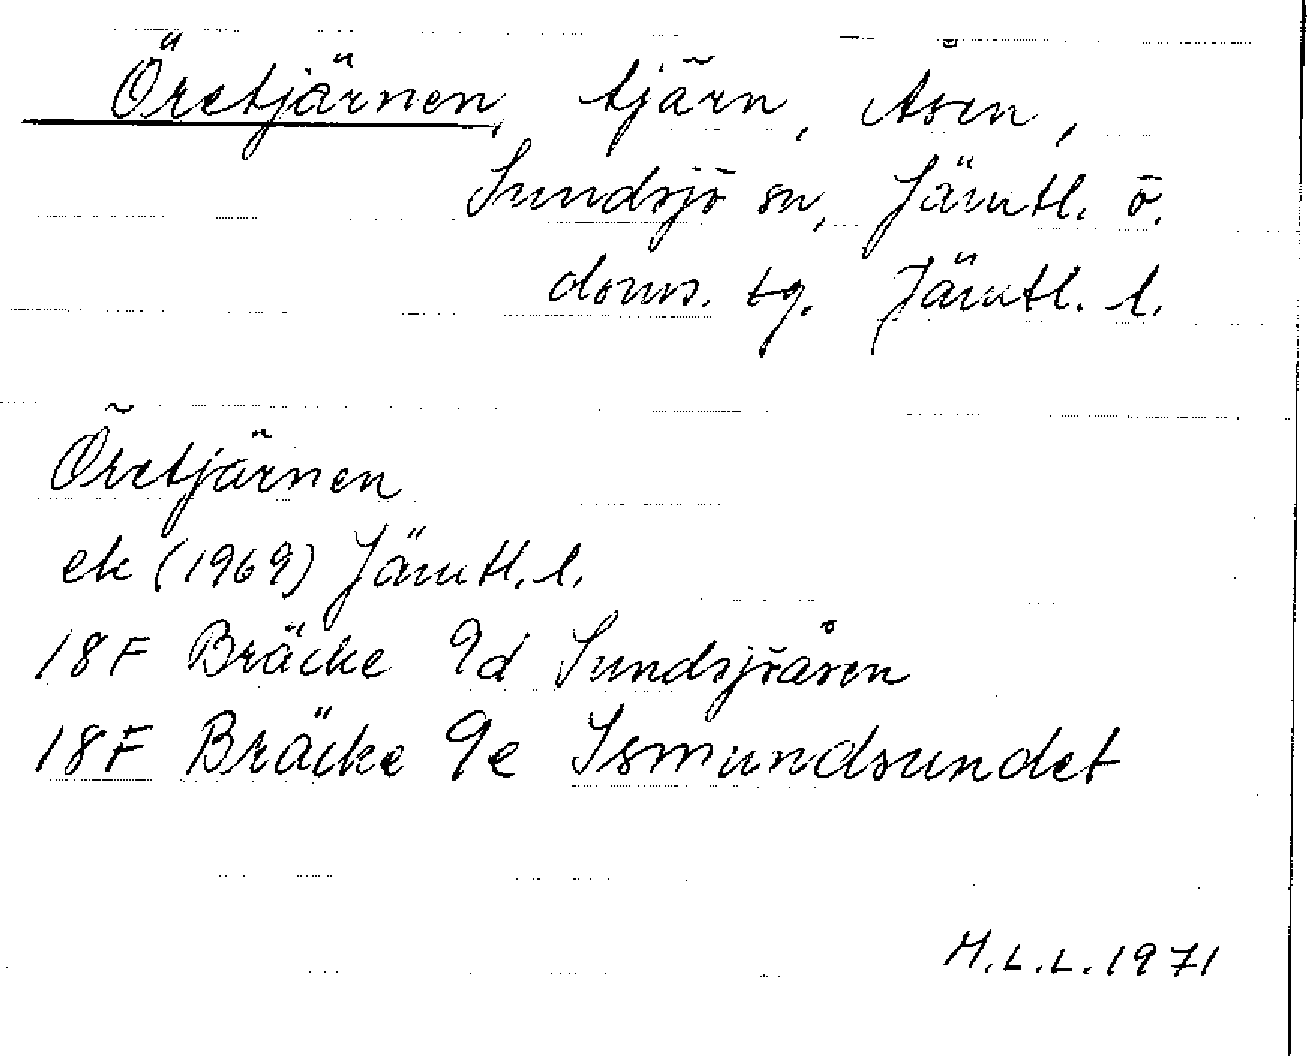 Öretjärnen, tjärn, Åsen,
Sundsjö sn, Jämtl. ö.
doms. tg. Jämtl. l.
Öretjärnen
ek (1969) Jämtl. l.
18F Bräcke 9d Sundsjöåsen
18F Bräcke 9e Ismundsundet
M.L.L. 1971